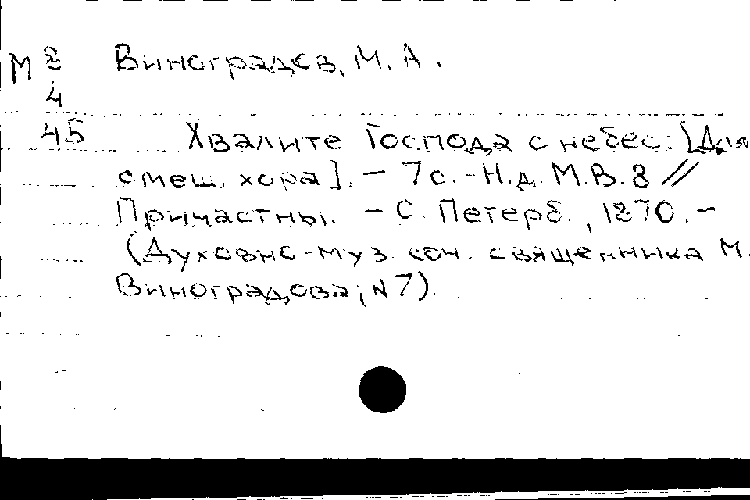 М 8 Виноградов, М. А.
4
45 Хвалите Господа с небес: [Для
смеш. хора]. – 7 с. – Н.д. М.В.8 //
Причастны. – С. Петерб., 1870. –
(Духовно-муз. соч. священника М.
Виноградова; N 7).